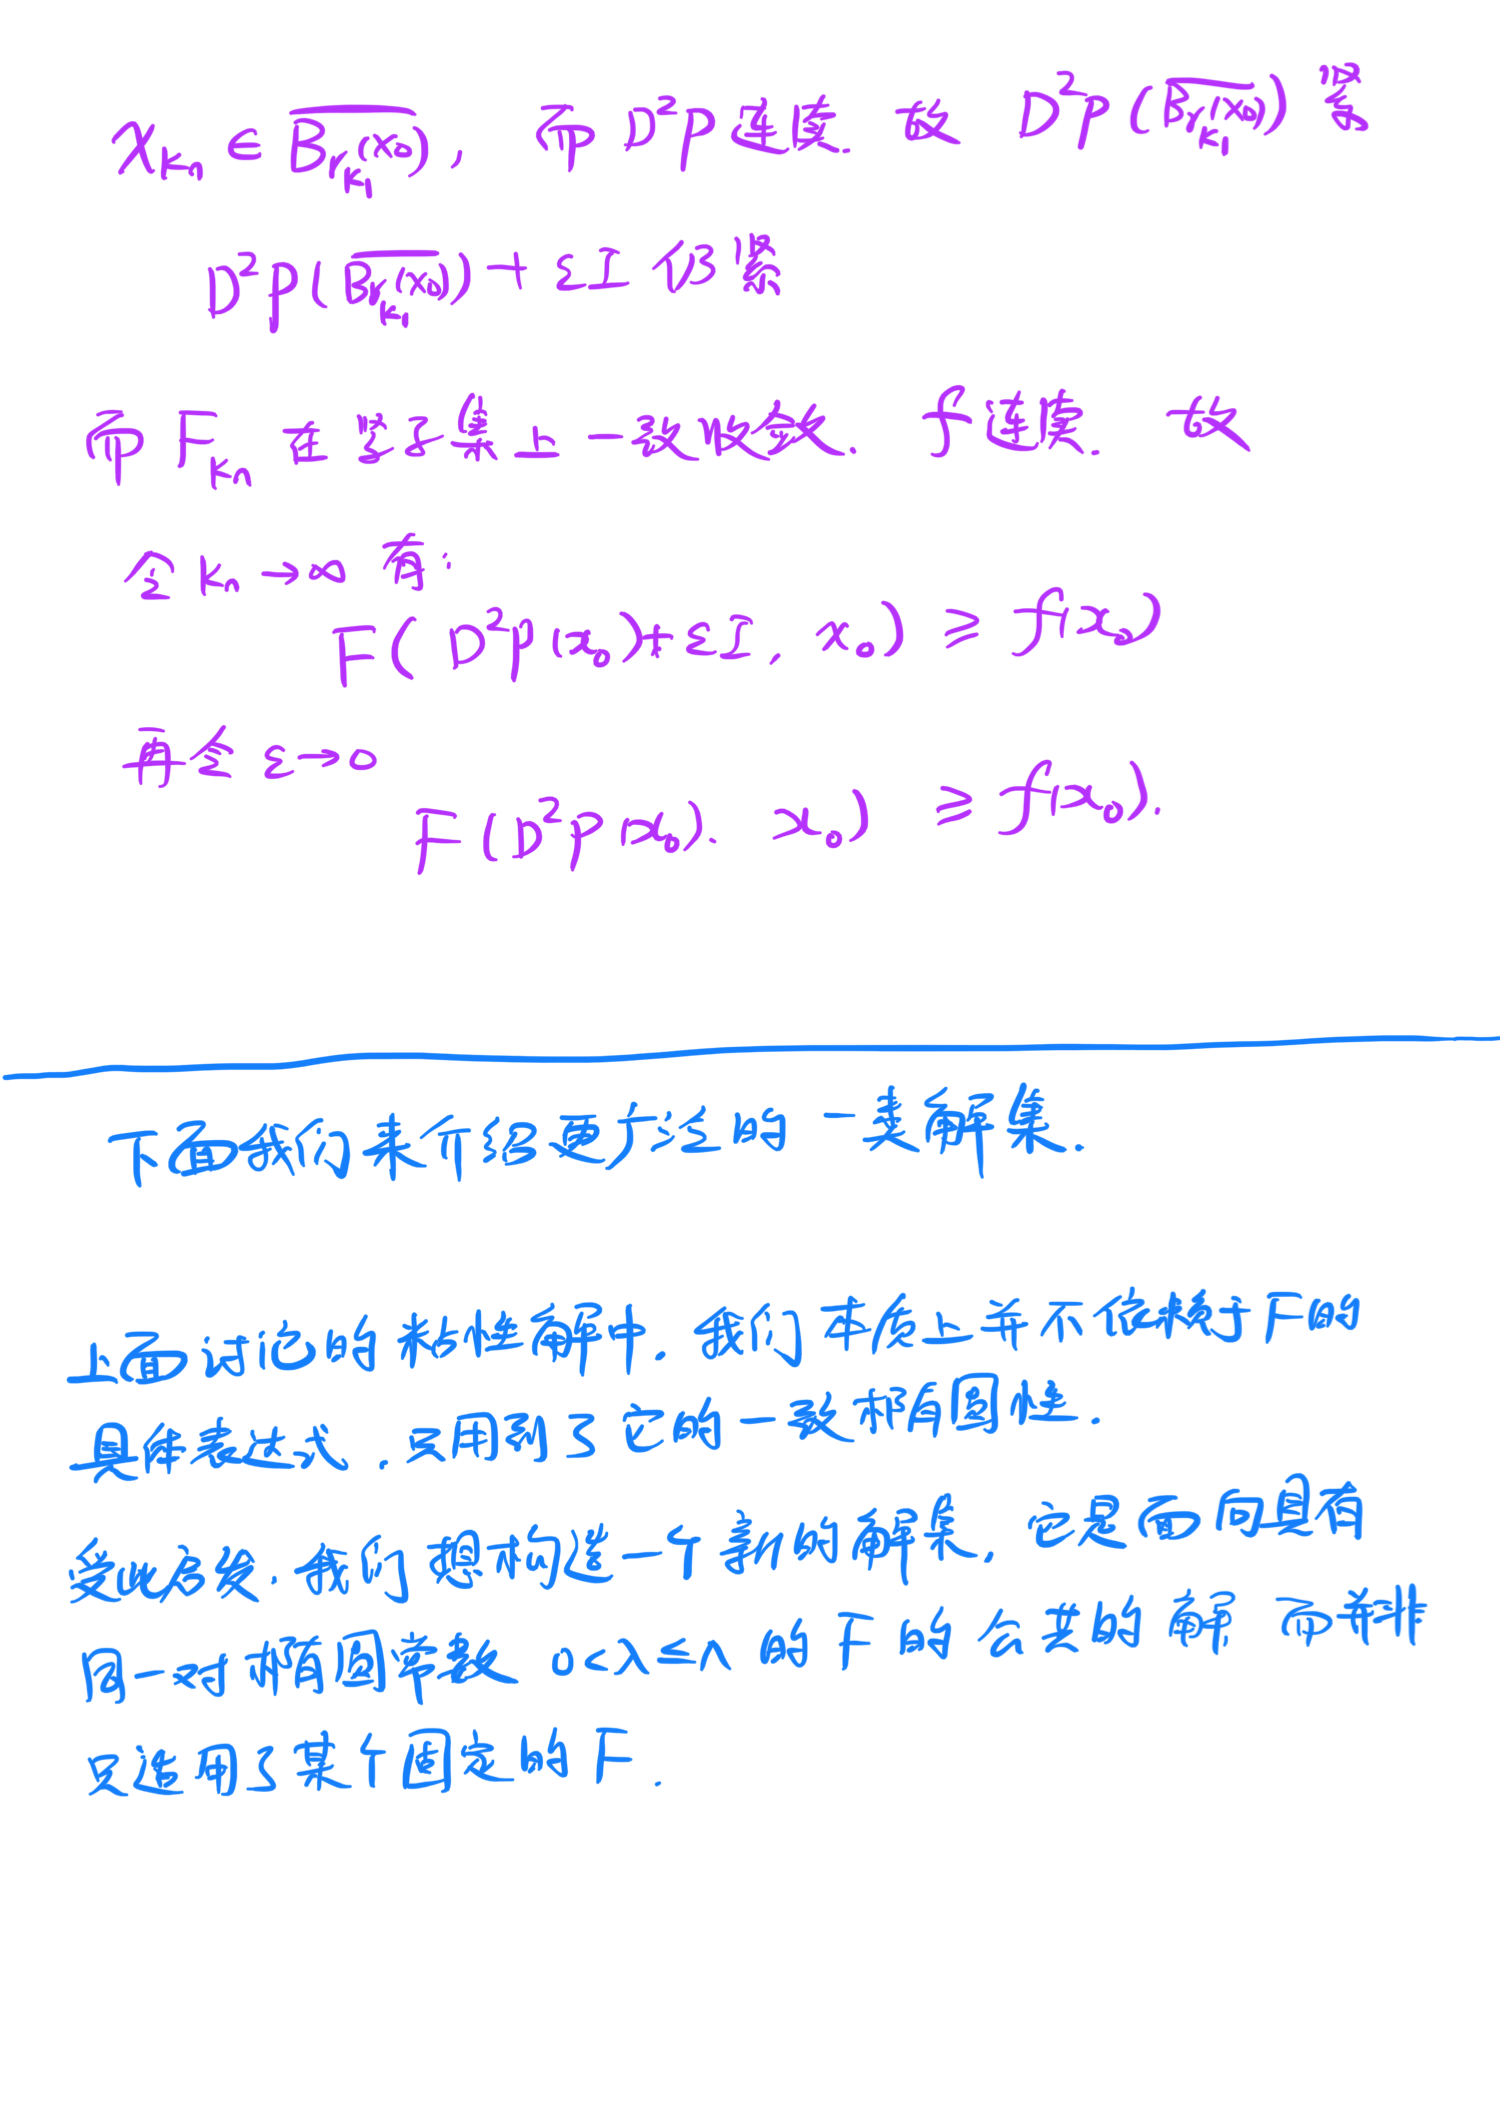 $x_{k_n} \in \overline{B_{r_{k_1}}(x_0)}$, 而 $D^2P$ 连续. 故 $D^2P(\overline{B_{r_{k_1}}(x_0)})$ 紧
$D^2P(\overline{B_{r_{k_1}}(x_0)}) + \varepsilon I$ 仍紧
而 $F_{k_n}$ 在紧子集上一致收敛. $f$ 连续. 故
令 $k_n \to \infty$ 有:
$F(D^2P(x_0) + \varepsilon I, x_0) \geqslant f(x_0)$
再令 $\varepsilon \to 0$
$F(D^2P(x_0). x_0) \geqslant f(x_0).$
下面我们来介绍更广泛的一类解集.
上面讨论的粘性解中. 我们本质上并不依赖于F的
具体表达式. 只用到了它的一致椭圆性.
受此启发. 我们想构造一个新的解集, 它是面向具有
同一对椭圆常数 $0 < \lambda \leq \Lambda$ 的 F 的公共的解 而并非
只适用了某个固定的 F.